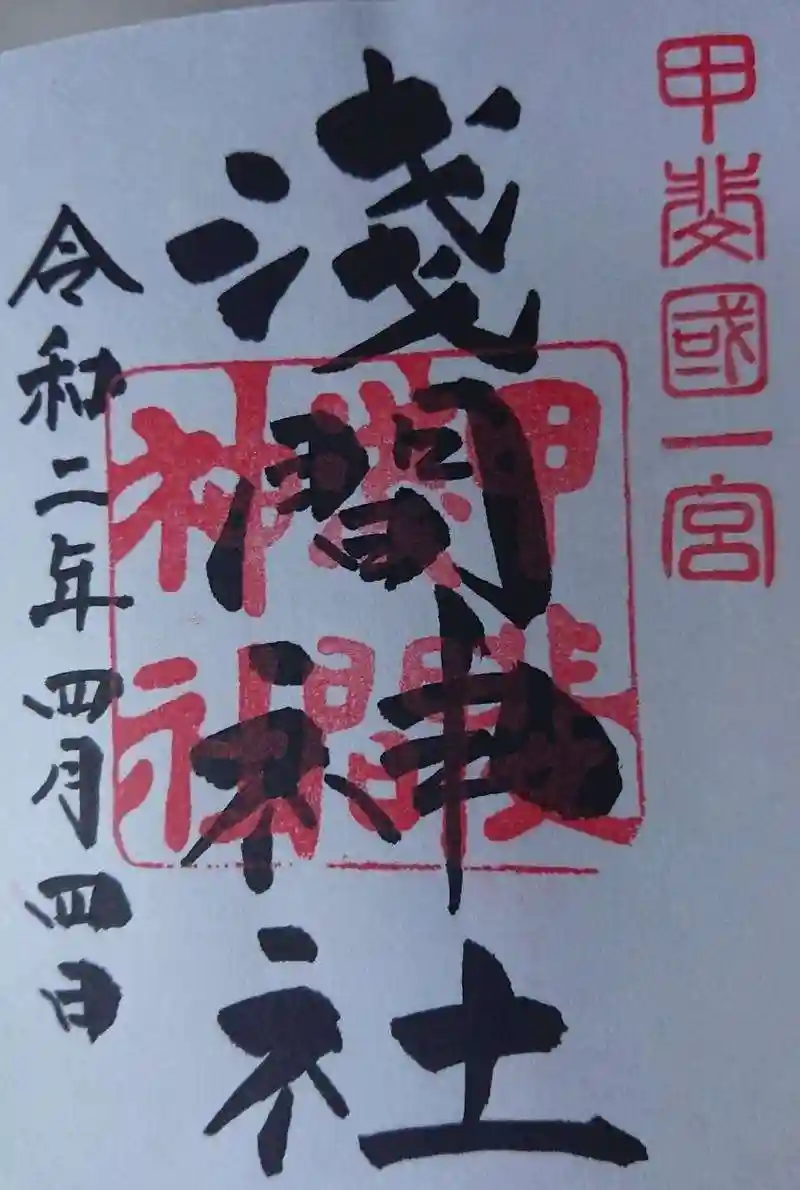 甲斐國一宮
淺間神社
甲斐
淺間
神社
令和二年四月四日